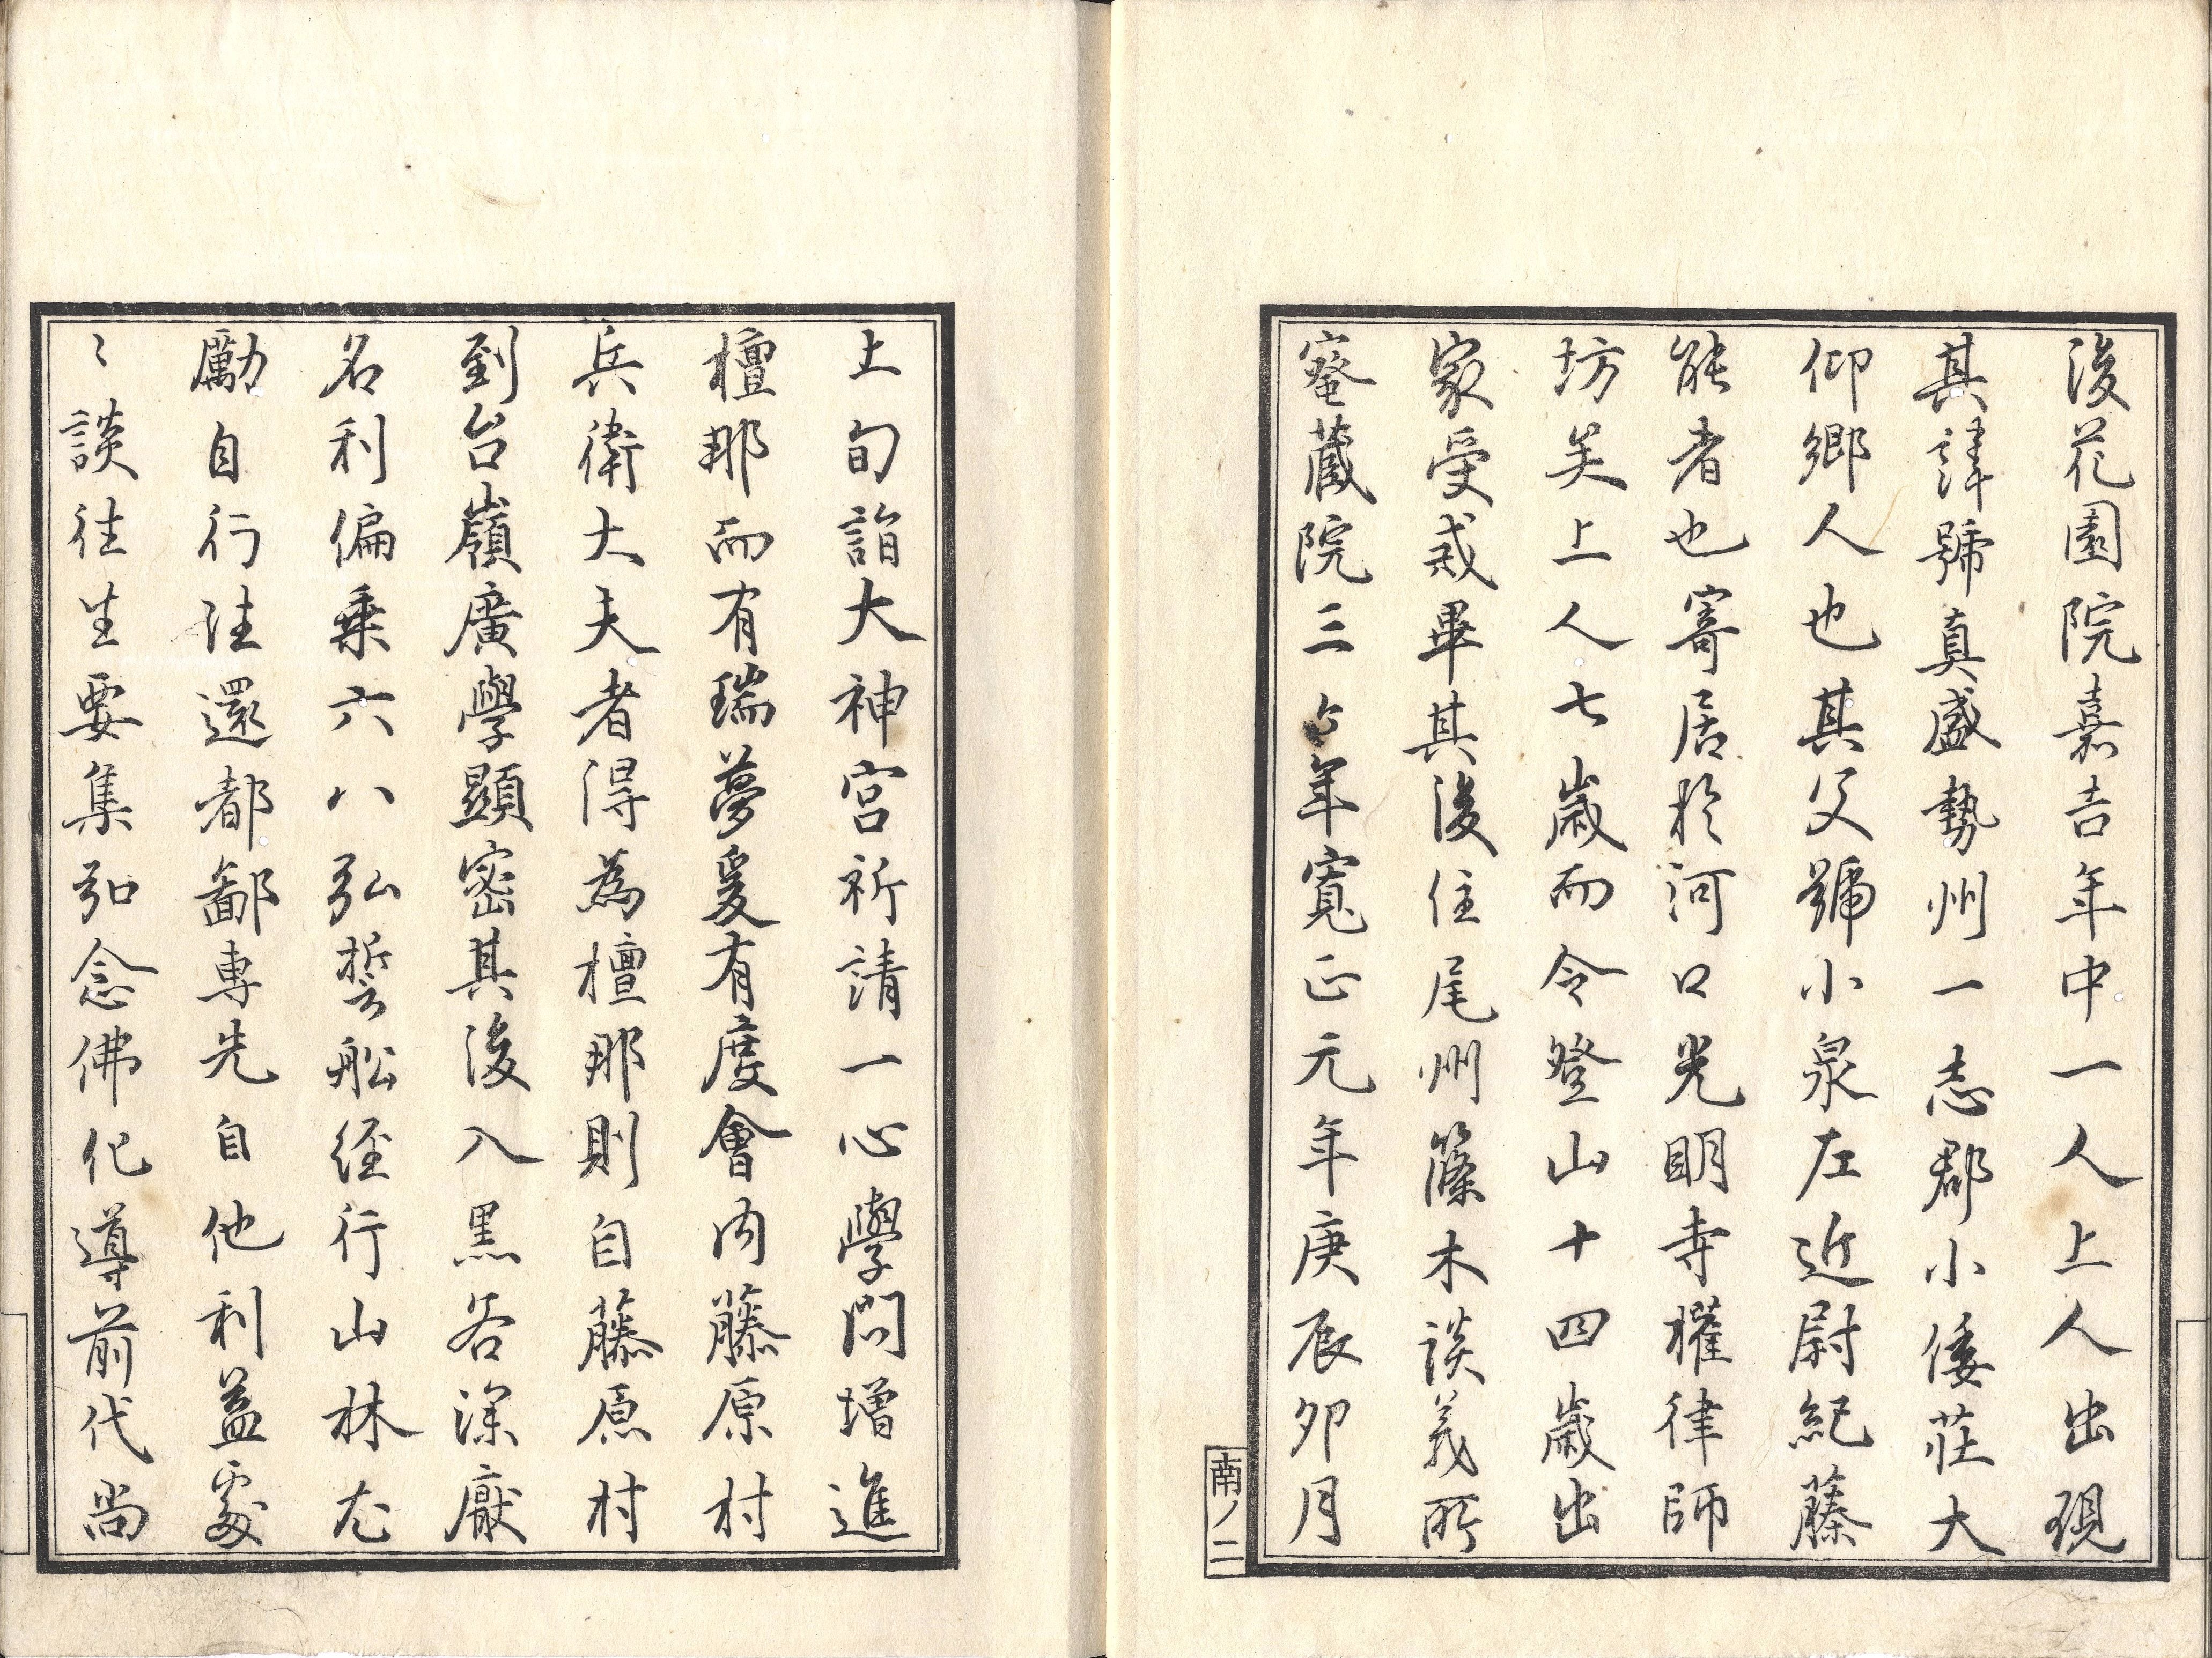 後花園院嘉吉年中一人上人出現
其諱號真盛勢州一志郡小倭荘大
仰郷人也其父號小泉左近尉紀藤
能者也寄居於河口光明寺權律師
坊矣上人七歳而令登山十四歳出
家受戒畢其後住尾州篠木談義所
密蔵院三ケ年寛正元年庚辰卯月
南ノ二
上旬詣大神宮祈請一心學問増進
檀那而有瑞夢爰有度會内藤原村
兵衛大夫者得為檀那則自藤原村
到台嶺廣學顯密其後入黒谷深厭
名利偏乗六八弘誓舩経行山林尤
勵自行往還都鄙専先自他利益處
〻談往生要集弘念佛化導前代尚